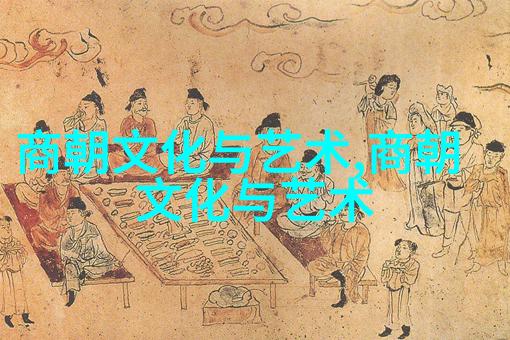 商朝文化与艺术,商朝
文化与艺术